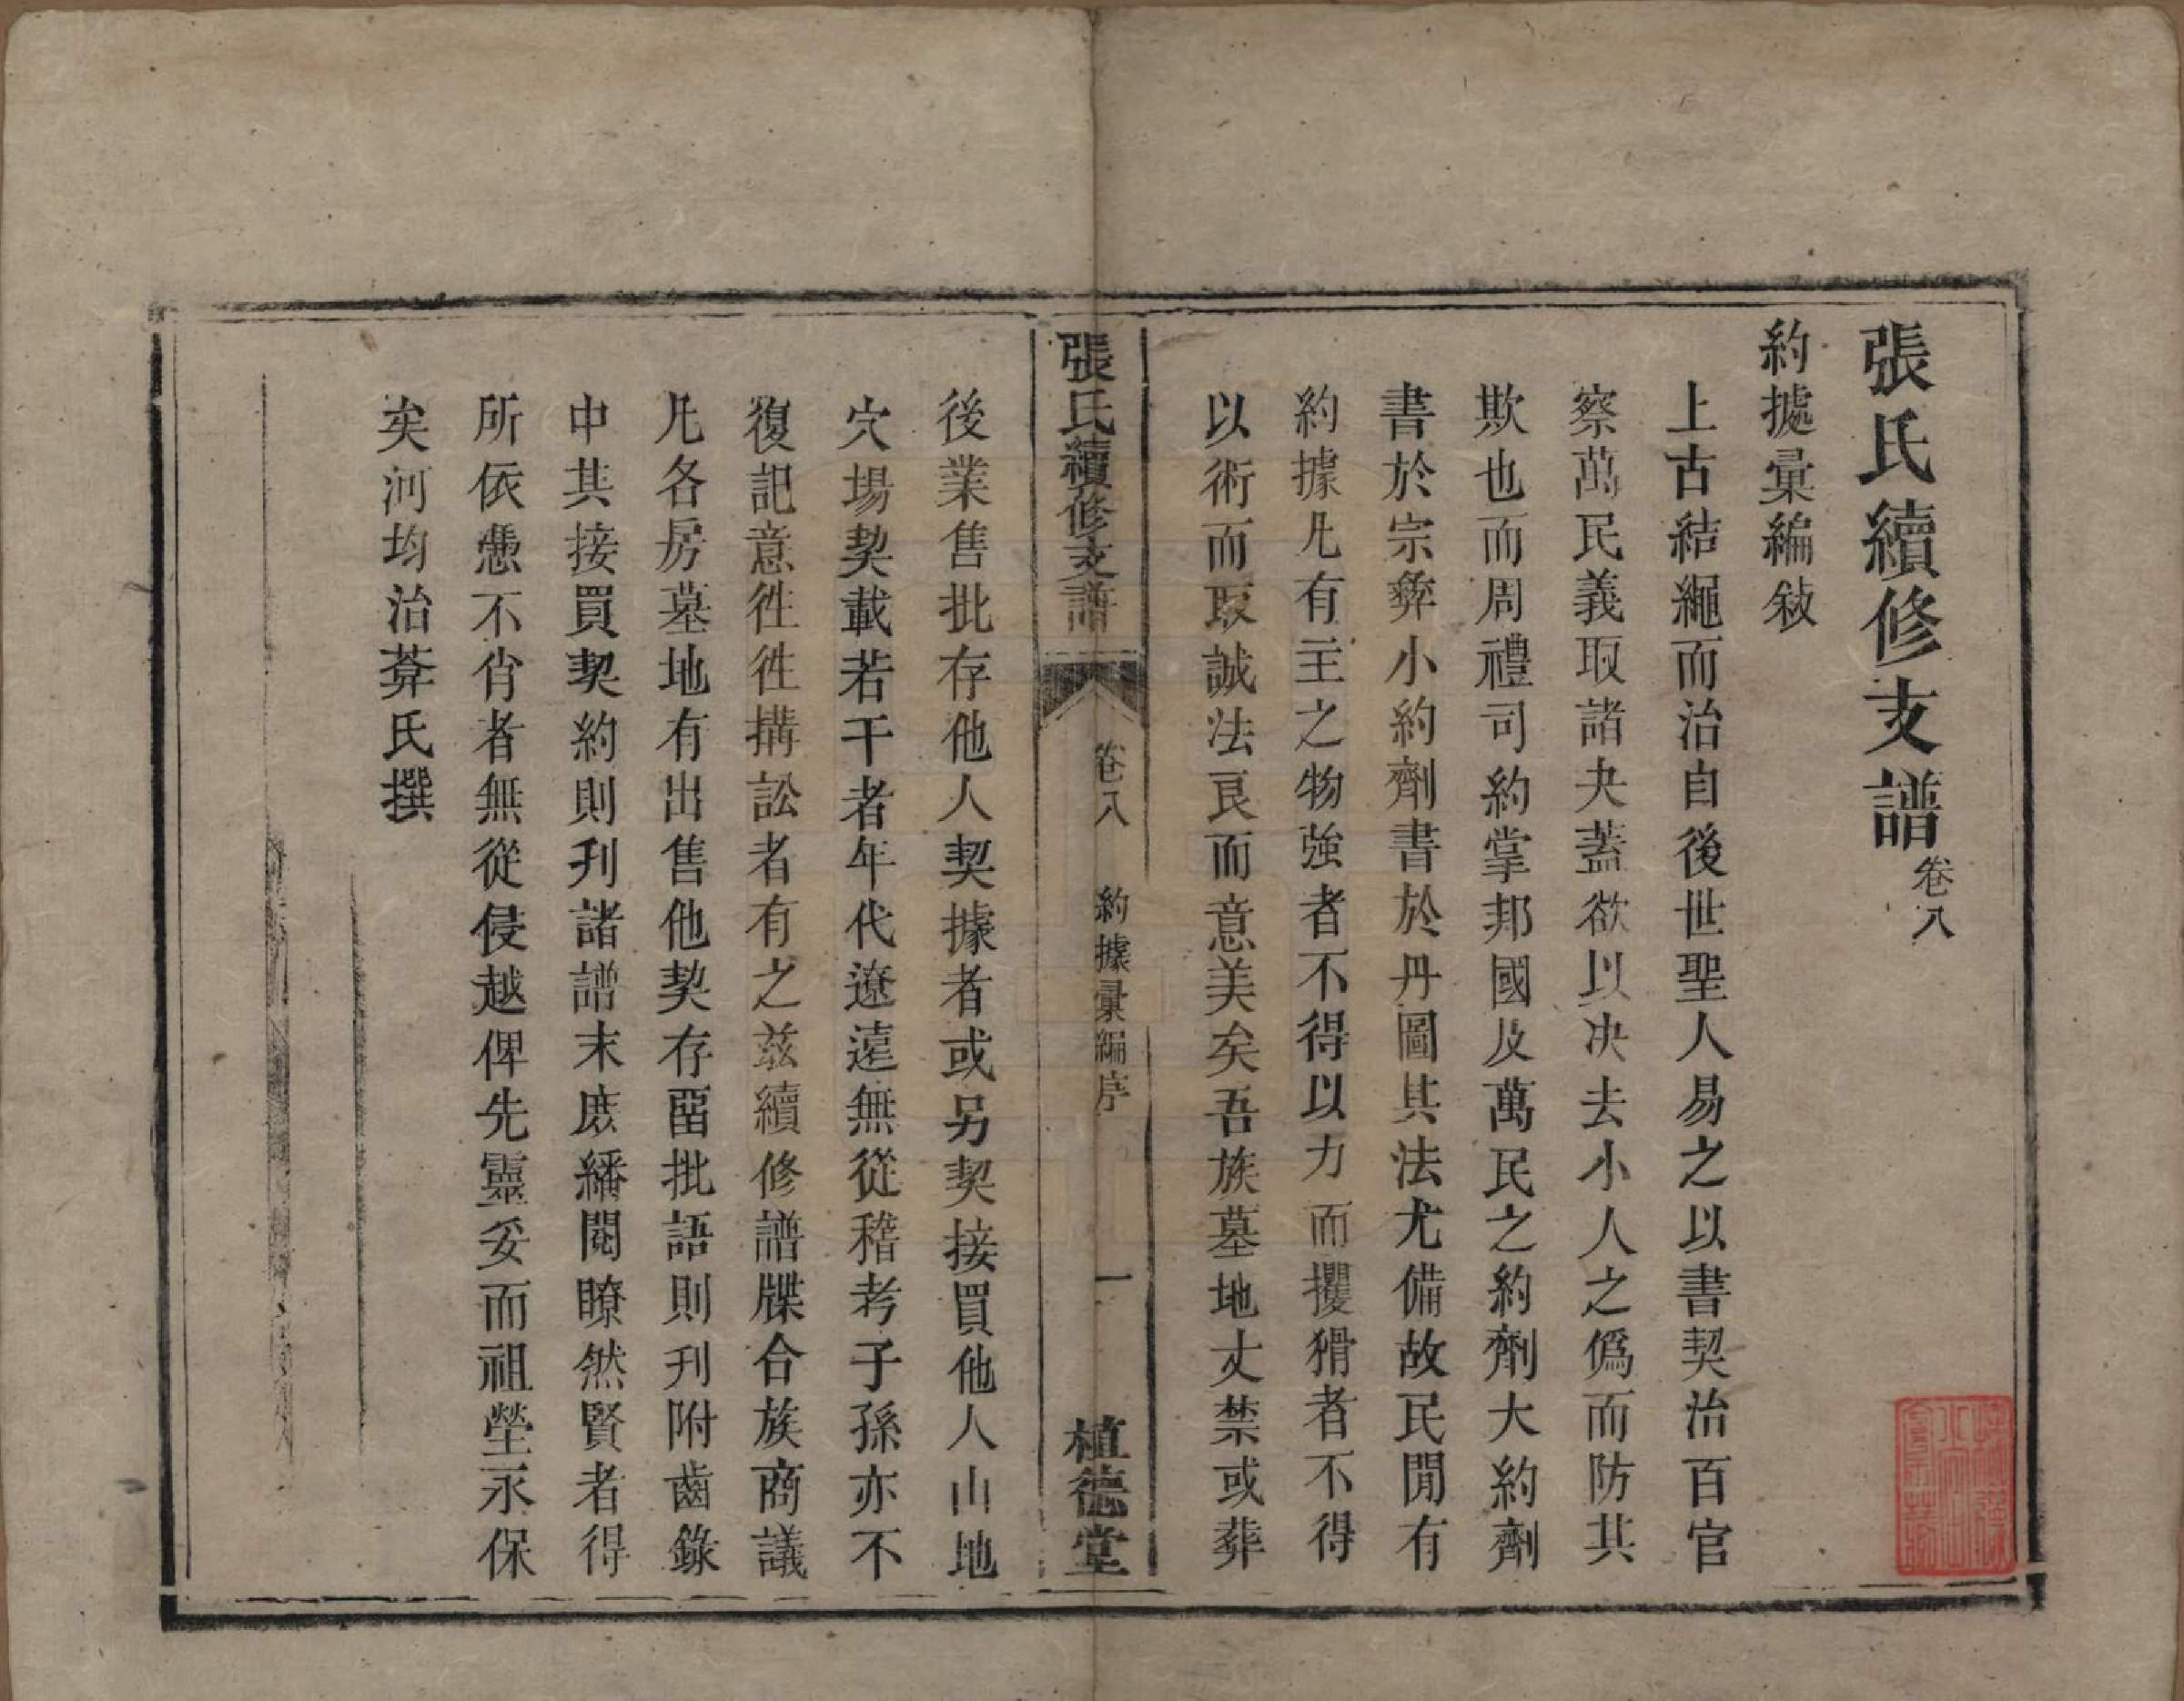 張氏續修支譜卷八
約據彙編敍
上古結繩而治自後世聖人易之以書契治百官
察萬民義取諸夬蓋欲以决去小人之僞而防其
欺也而周禮司約掌邦國及萬民之約劑大約劑
書於宗彝小約劑書於丹圖其法尤備故民閒有
約據凡有主之物強者不得以力而攫猾者不得
以術而取誠法良而意美矣吾族墓地丈禁或葬
張氏續修支譜 卷八 約據彙編序 一 植德堂
後業售批存他人契據者或另契接買他人山地
穴場契載若干者年代遼遠無從稽考子孫亦不
復記意徃徃搆訟者有之茲續修譜牒合族商議
凡各房墓地有出售他契存畱批語則刋附齒錄
中其接買契約則刋諸譜末庶繙閱瞭然賢者得
所依憑不肖者無從侵越俾先靈妥而祖塋永保
矣河均治莽氏撰